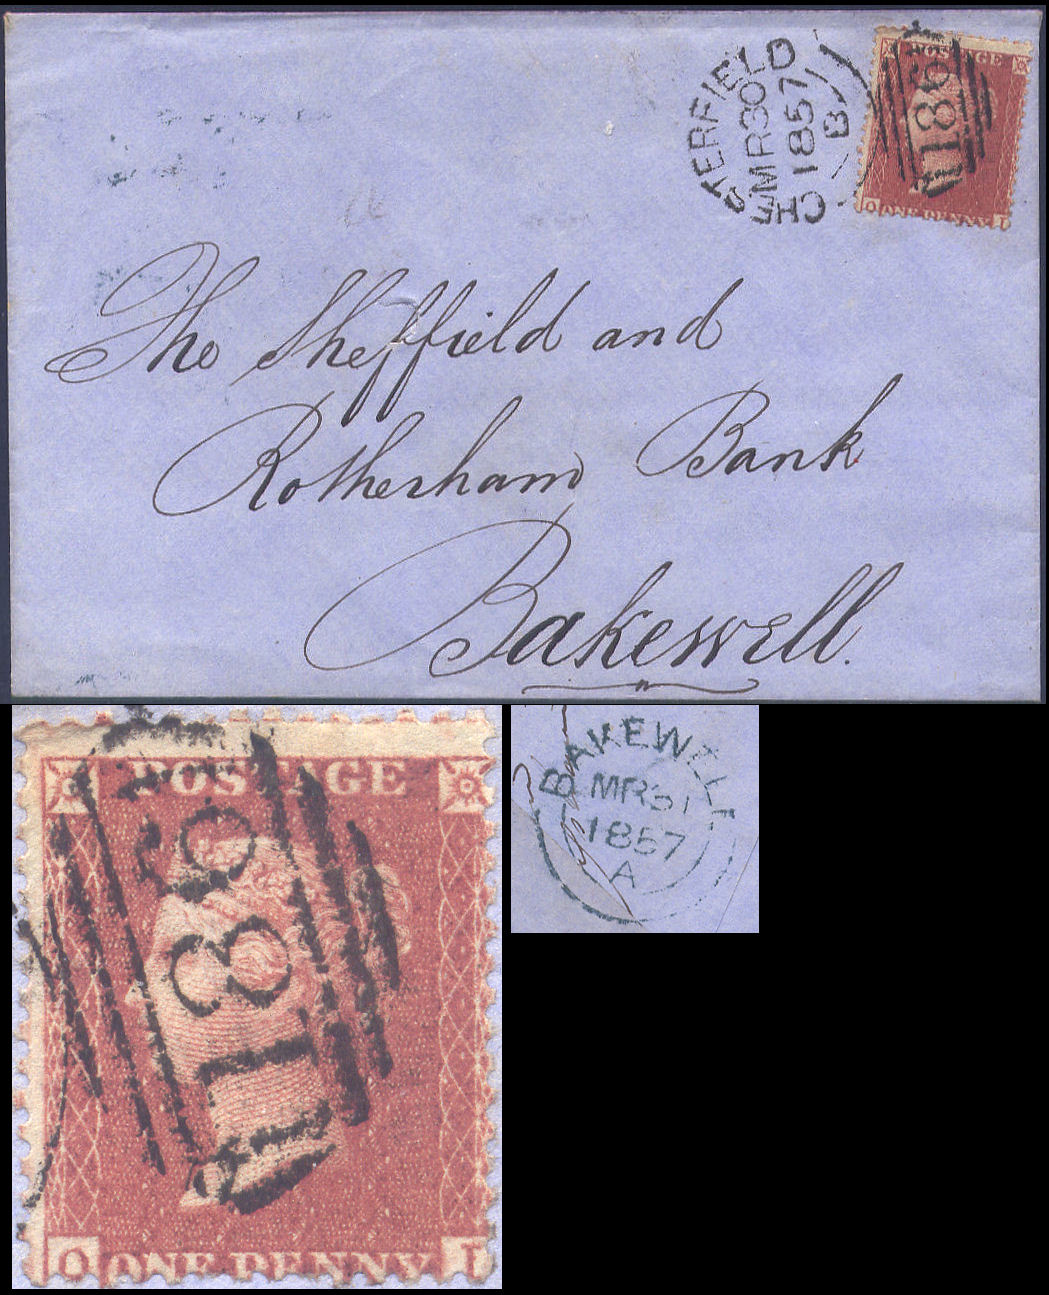 CHESTERFIELD
MR 30
1857
B
POSTAGE
186
O ONE PENNY I
The Sheffield and
Rotherham Bank
Bakewell.
POSTAGE
186
O ONE PENNY I
BAKEWELL
MR 31
1857
A